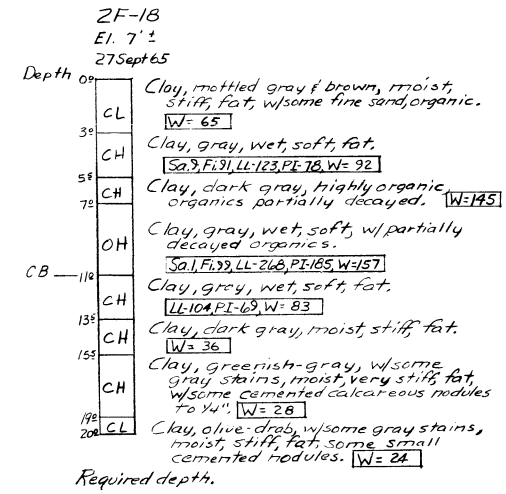 2F-18
El. 7' ±
27 Sept 65
Depth 0.0
Clay, mottled gray & brown, moist,
stiff, fat, w/some fine sand, organic.
CL
W= 65
3.0
Clay, gray, wet, soft, fat.
CH
Sa.9, Fi.91, LL-123, PI-78, W= 92
5.5
Clay, dark gray, highly organic,
CH
organics partially decayed. W=145
7.0
Clay, gray, wet, soft, w/partially
decayed organics.
OH
Sa.1, Fi.99, LL-268, PI-185, W=157
CB 11.0
Clay, gray, wet, soft, fat.
CH
LL-104, PI-69, W= 83
13.5
Clay, dark gray, moist, stiff, fat.
CH
W= 36
15.5
Clay, greenish-gray, w/some
gray stains, moist, very stiff, fat,
CH
w/some cemented calcareous nodules
to 1/4". W= 28
19.0
CL
Clay, olive-drab, w/some gray stains,
20.0
moist, stiff, fat, some small
cemented nodules. W= 24
Required depth.